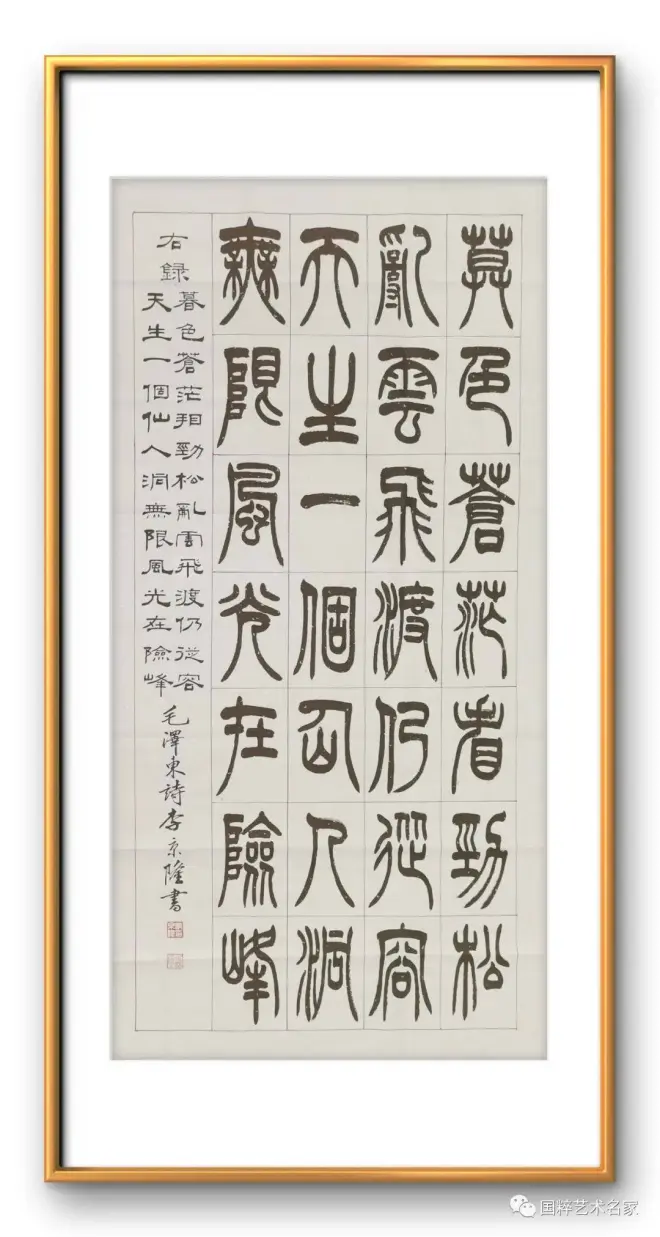 莫色蒼茫看勁松
亂雲飛渡仍從容
天生一個仚人洞
無限風光在險峰
右録
暮色蒼茫相勁松亂雲飛渡仍從容
天生一個仙人洞無限風光在險峰
毛澤東詩李京隆書
国粹艺术名家